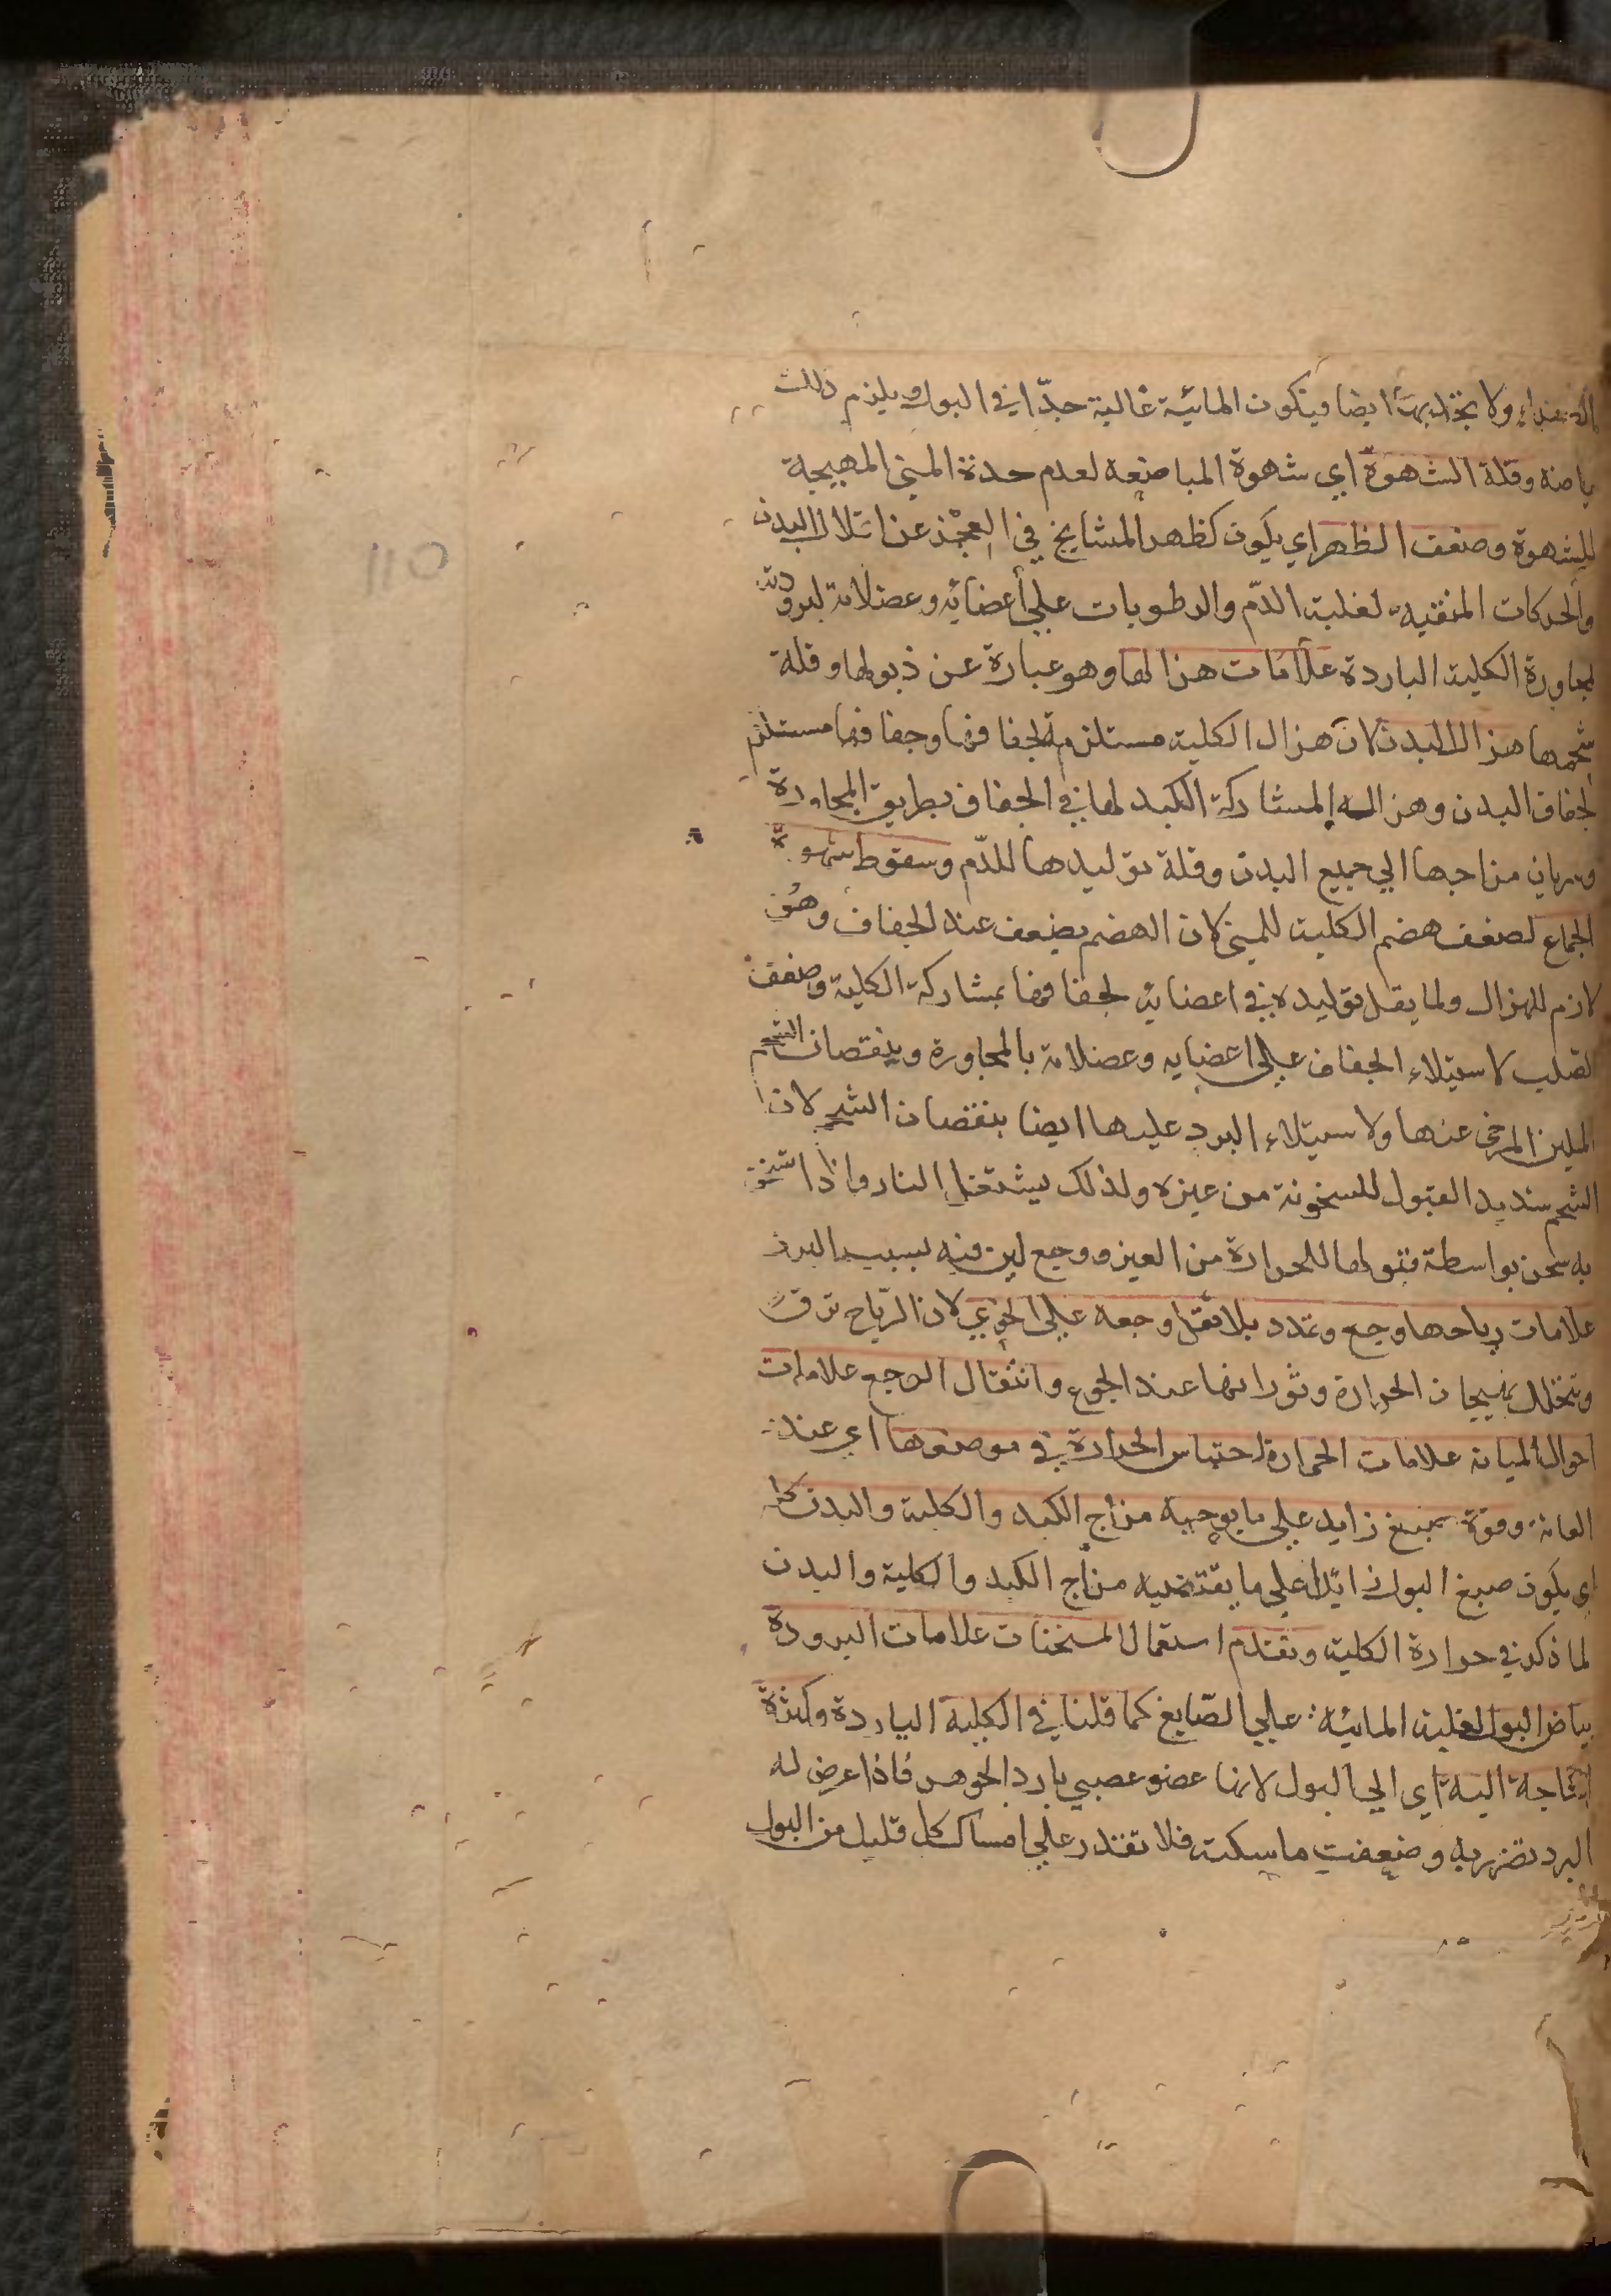 ولا يجذبها ايضا فيكون المائية غالبة جدّا في البول ويلزم ذلك
بياضه وقلة الشهوة اي شهوة المباضعه لعدم حدة المني المهيجة
للشهوة وضعف الظهر اي يكون كظهر المشايخ في العجز عن البدن
والحركات لغلبة الدّم والرطوبات علي أعضائه وعضلاته لبرودته
لمجاورة الكلية الباردة علامات هزالها وهو عبارة عن ذبولها وقلة
شحمها هزال البدن لان هزال الكلية مستلزمة لجفافها وجفافها مستلزم
لجفاف البدن وهزاله لمشاركة الكبد لها في الجفاف بطريق المجاورة
وسريان مزاجها الي جميع البدن وقلة توليدها للدّم وسقوط شهوة
الجماع لضعف هضم الكلية للمني لان الهضم يضعف عند الجفاف وهو
لازم للهزال ولما يقل توليده في اعضايه لجفافها بمشاركة الكلية وضعف
الصلب لاستيلاء الجفاف علي اعضايه وعضلاته بالمجاورة وبنقصان الشحم
الملين المرخي عنها ولاستيلاء البرد عليها ايضا بنقصان الشحم لان
الشحم شديد القبول للسخونة من غيره ولذلك يشتعل النار واذا
به سخن بواسطة قبولها للحرارة من الغير ووجع لين فيه لسبب البرد
علامات رياحها وجع وتمدد بلا ثقل وجعه علي الخوي لان الرّياح ترق
وتتحلل بهيجان الحرارة وثورانها عند الجوع وانتقال الوجع علامات
احوال المثانه علامات الحرارة احتباس الحرارة في موضعها اي عند
العانة وقوة صبغ زايد علي ما يوجبه مزاج الكبد والكلية والبدن كله
اي يكون صبغ البول زائدا علي ما يقتضيه مزاج الكبد والكلية والبدن
لما ذكر في حرارة الكلية وتقدم استعمال المسخنات علامات البرودة
بياض البول لغلبة المائية علي الصّابغ كما قلنا في الكلية الباردة وكثرة
الحاجة اليه اي الي البول لانها عضو عصبي بارد الجوهر فاذا عرض له
البرد تضرر به وضعفت ماسكته فلا تقدر علي امساك كل قليل من البول